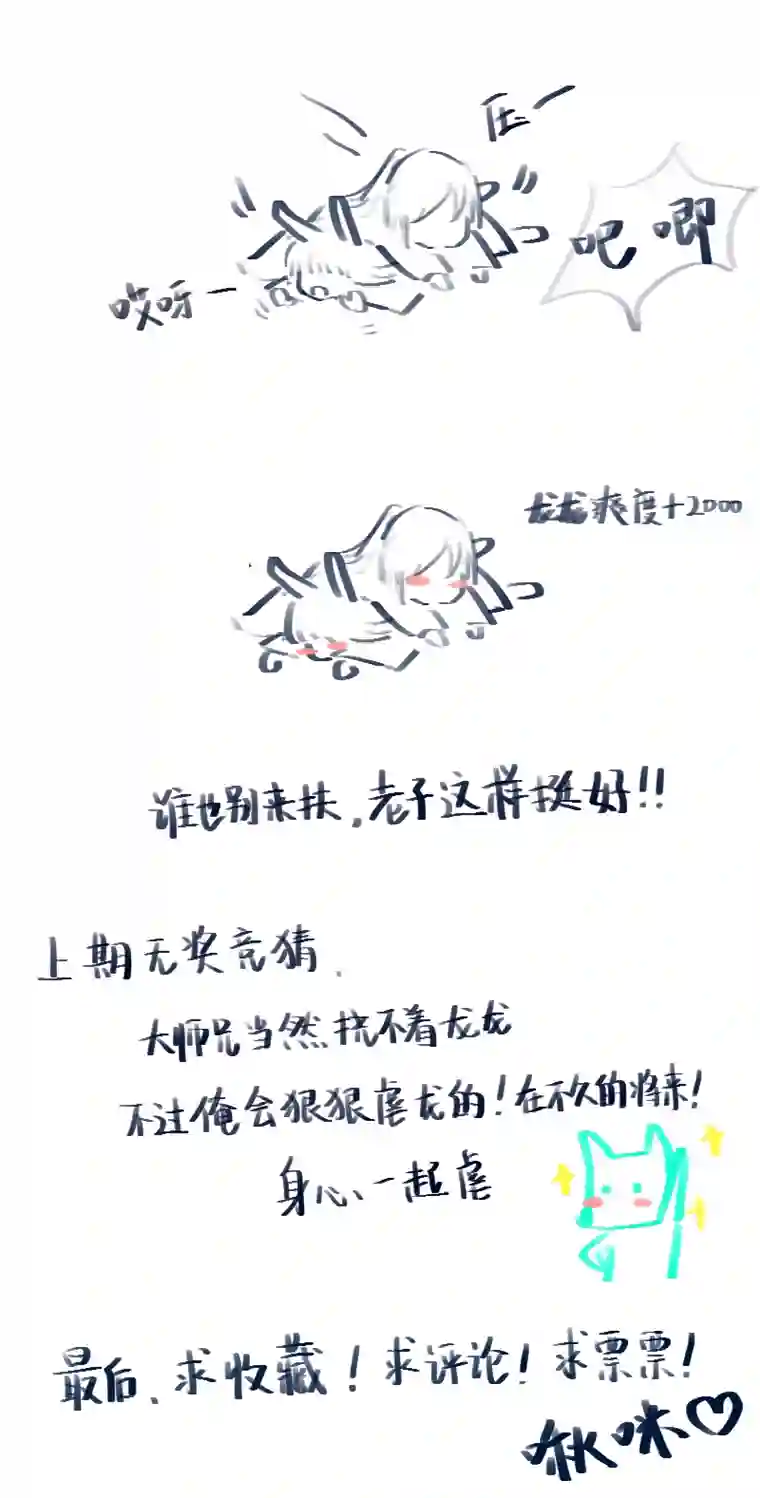 压一
吧唧
哎呀一
龙龙爽度+2000
谁也别来扶，老子这样挺好！！
上期无奖竞猜.
大师兄当然抗不着龙龙
不过俺会狠狠虐龙的！在不久的将来！
身心一起虐
最后、求收藏！求评论！求票票！
啾咪♡